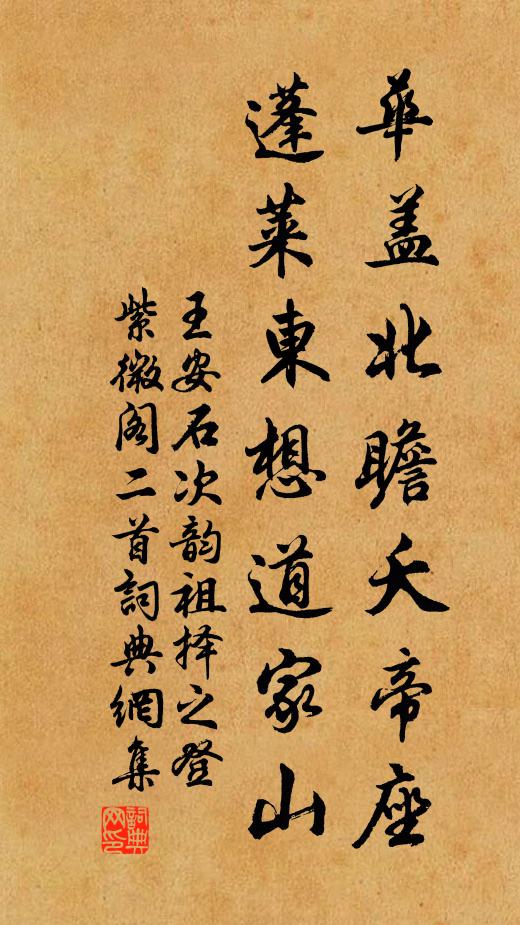 華蓋北瞻天帝座
蓬萊東想道家山
王安石次韵祖择之登
紫微阁二首詞典網集
詞典网印